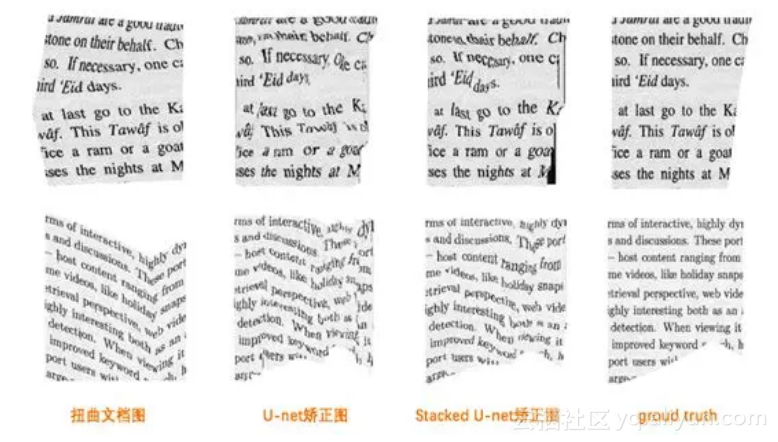 stone on their behalf. Ch
so. If necessary, one ca
hird 'Eid days.
at last go to the Ka
wâf. This Tawâf is ol
fice a ram or a goat
ses the nights at M
so. If necessary, One ca
hird 'Eid days
at last go to the Ka
wâf. This Tawâf is ol
fice a ram or a goa
ses the nights at M
tone on their behalf. Ch
so. If necessary, one c
hird 'Eid days.
at last go to the K
wâf. This Tawâf is o
fice a ram or a goa
ses the nights at M
tone on their behalf. Ch
so. If necessary, one ca
ird 'Eid days.
at last go to the Ka
wâf. This Tawâf is ol
fice a ram or a goa
ses the nights at M
rms of interactive, highly dyn
s and discussions. These port
– host content ranging from
me videos, like holiday snaps
etrieval perspective, web vide
ighly interesting both as an i
detection. When viewing it
improved keyword h, h
port users with
rms of interactive, highly dyn
s and discussions. These
– host content ranging from
me videos, like holiday snaps
etrieval perspective, web
ighly interesting both as an
detection. When viewing
improved keyword
port users
rms of interactive, highly dyn
s and discussions. These port
– host content ranging from
me videos, like holiday snapsi
etrieval perspective, web vide
ighly interesting both as an
detection. When viewing it
improved keyword h, h
port users with
rms of interactive, highly dyn
s and discussions. These port
– host content ranging from
me videos, like holiday snaps
etrieval perspective, web vide
ighly interesting both as an i
detection. When viewing it
improved keyword h, h
port users
扭曲文档图
U-net矫正图
Stacked U-net矫正图
groud truth
云栖社区 yq.aliyun.com